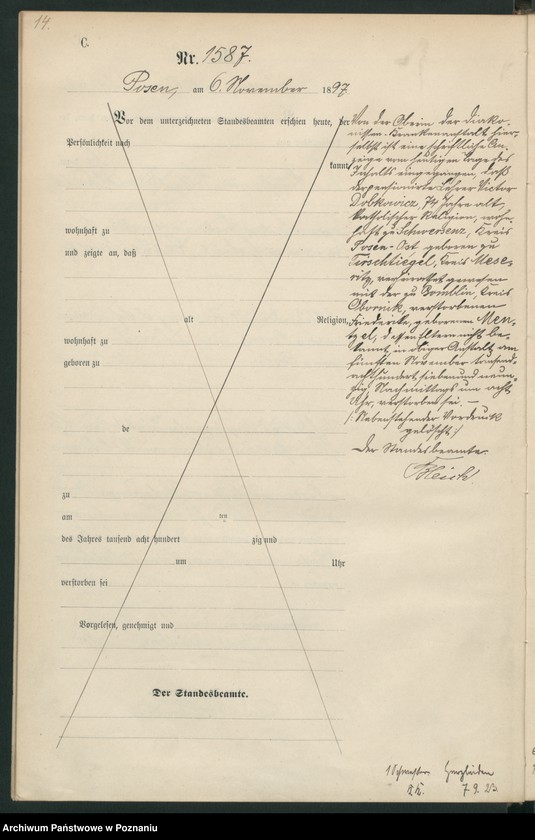 14.
C.
Nr. 1587.
Posen, am 6. November 1897
Vor dem unterzeichneten Standesbeamten erschien heute, der
Persönlichkeit nach
kannt,
wohnhaft zu
und zeigte an, daß
alt Religion,
wohnhaft zu
geboren zu
de
zu
am un
des Jahres tausend acht hundert zig und
um Uhr
verstorben sei
Vorgelesen, genehmigt und
Der Standesbeamte.
Von der Oberin der Diako-
nissen-Krankenanstalt hier-
selbst ist eine schriftliche An-
zeige vom heutigen Tage des
Inhalts eingegangen, daß
der pensionirte Lehrer Victor
Dobkowicz, 74 Jahre alt,
katholischer Religion, wohn-
haft zu Schwersenz, Kreis
Posen-Ost geboren zu
Tirschtiegel, Kreis Mese-
ritz, verheirathet gewesen
mit der zu Bomblin, Kreis
Obornik, verstorbenen
Friederike, geborenen Men-
tzel, dessen Eltern nicht be-
kannt, in obiger Anstalt am
fünften November tausend
achthundert sieben und neun-
zig, Nachmittags um acht
Uhr, verstorben sei. —
/: Nebenstehender Vordruck
gelöscht :/
Der Standesbeamte
7. 9. 23
Archiwum Państwowe w Poznaniu